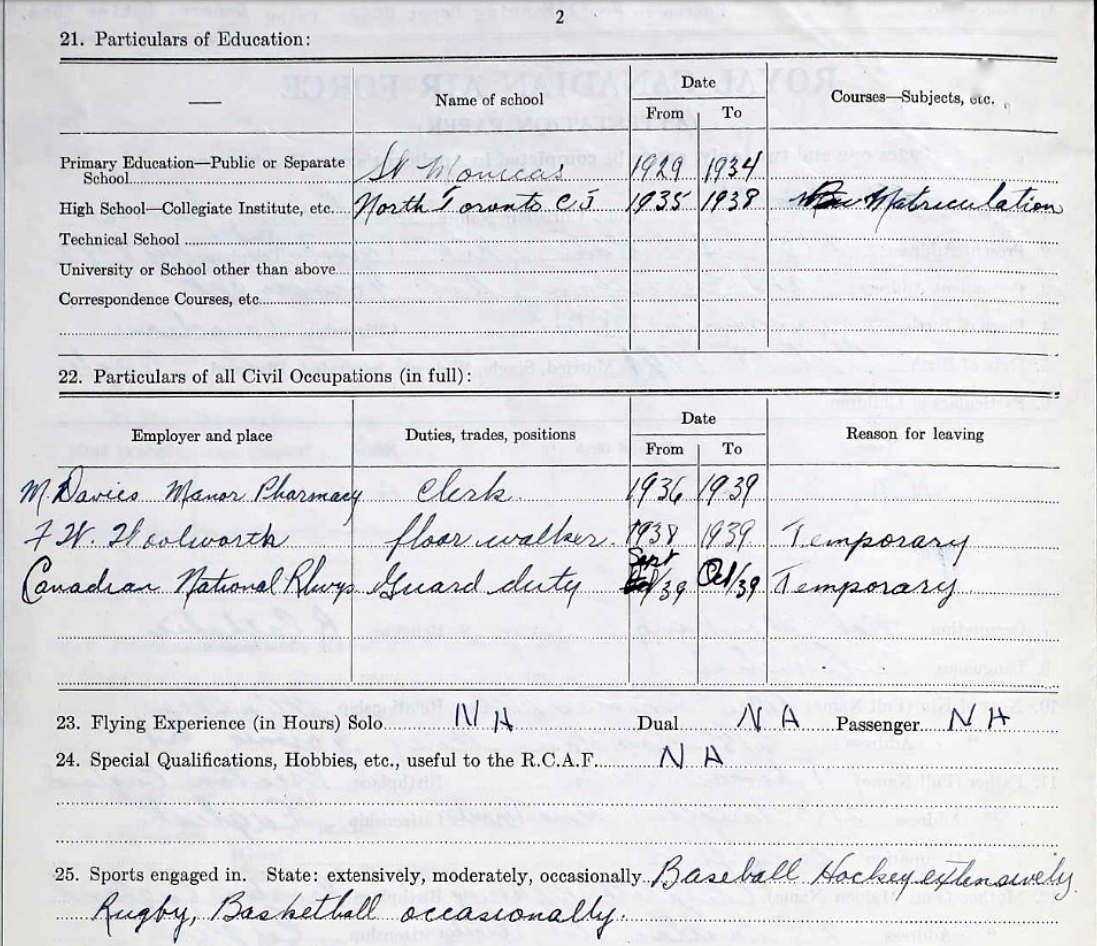 2
21. Particulars of Education:
— Name of school Date Courses—Subjects, etc.
From To
Primary Education—Public or Separate School St Monicas 1929 1934
High School—Collegiate Institute, etc. North Toronto C I 1935 1938 Matriculation
Technical School
University or School other than above
Correspondence Courses, etc.
22. Particulars of all Civil Occupations (in full):
Employer and place Duties, trades, positions Date Reason for leaving
From To
M. Davies Manor Pharmacy Clerk 1936 1939
F. W. Woolworth floor walker 1938 1939 Temporary
Canadian National Rlwys Guard duty Sept/39 Oct/39 Temporary
23. Flying Experience (in Hours) Solo N A Dual N A Passenger N A
24. Special Qualifications, Hobbies, etc., useful to the R.C.A.F. N A
25. Sports engaged in. State: extensively, moderately, occasionally Baseball Hockey extensively.
Rugby, Basketball occasionally.